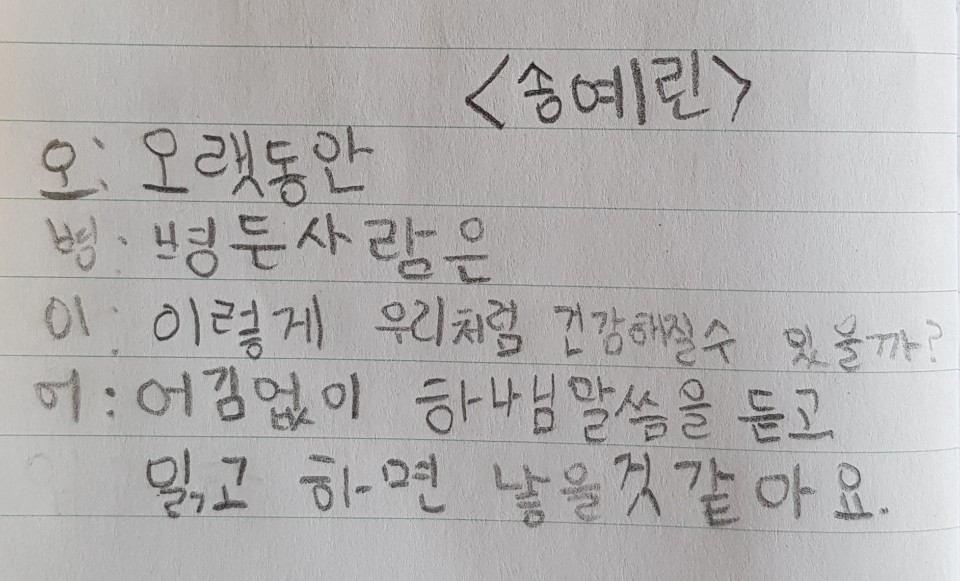 <송예린>
오: 오랫동안
병: 병든사람은
이: 이렇게 우리처럼 건강해질수 있을까?
어: 어김없이 하나님말씀을 듣고
읽고 하면 낳을것 같아요.